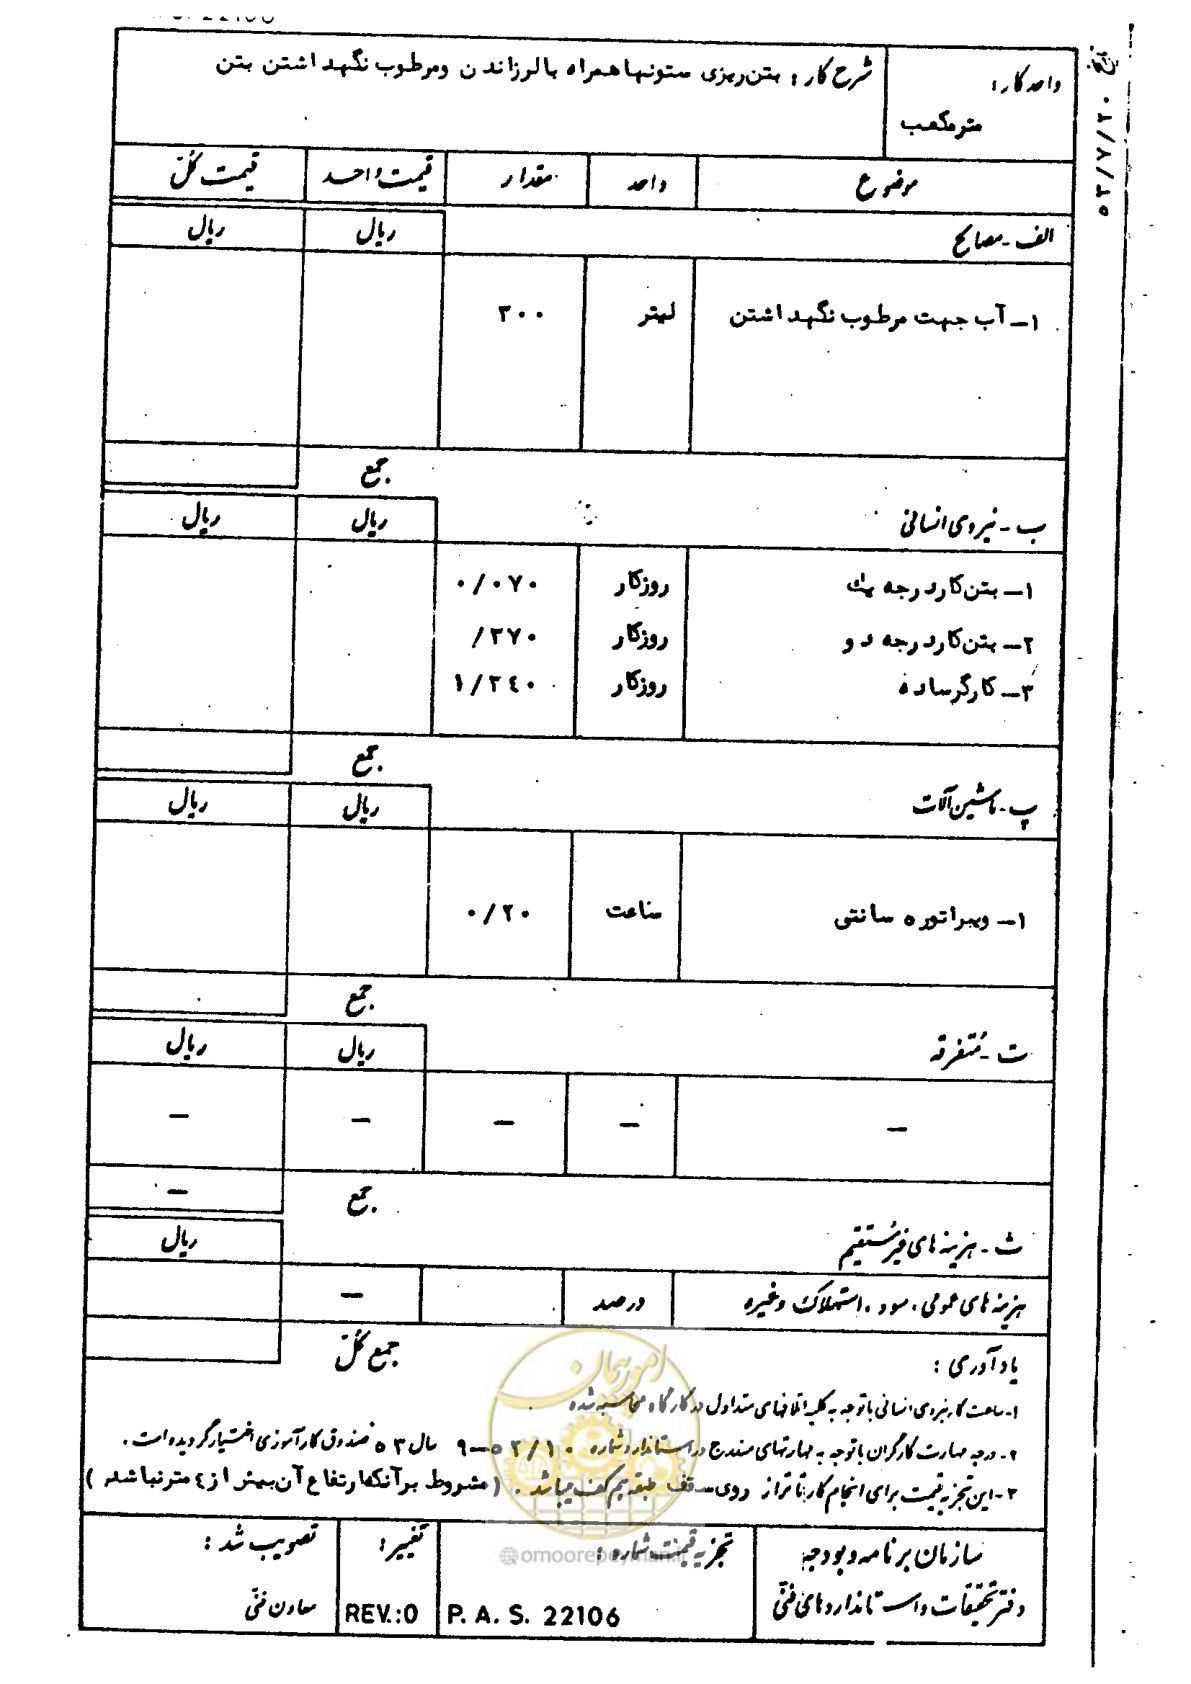 واحد کار:
مترمکعب
شرح کار: بتن‌ریزی ستونها همراه با لرزاندن ومرطوب نگهداشتن بتن
موضوع واحد مقدار قیمت واحد قیمت کُلّ
الف - مصالح ریال ریال
۱- آب جهت مرطوب نگهداشتن لیتر ۲۰۰
جمع
ب - نیروی انسانی ریال ریال
۱- بتن‌کار درجه یك روزکار ۰/۰۷۰
۲- بتن‌کار درجه دو روزکار /۲۷۰
۳- کارگرساده روزکار ۱/۲٤۰
جمع
پ - ماشین‌آلات ریال ریال
۱- ویبراتور ۵ سانتی ساعت ۰/۲۰
جمع
ت - مُتفرقه ریال ریال
— — — — —
جمع —
ث - هزینه های غیرمُستقیم ریال
هزینه های عمومی، سود، استهلاک وغیره درصد —
جمع کُلّ
یادآوری:
۱- ساعت کار نیروی انسانی با توجه به کلیه اتلافهای متداول در کارگاه محاسبه شده
۲- درجه مهارت کارگران با توجه به مهارتهای مندرج در استاندارد شماره ۹-۵۲/۱۰ سال ۵۳ صندوق کارآموزی اختیار گردیده است.
۳- این تجزیه قیمت برای انجام کار تا تراز روی سقف طبقه هم کف میباشد. (مشروط برآنکه ارتفاع آن بیش از ٤ متر نباشد)
سازمان برنامه و بودجه
دفتر تحقیقات و استانداردهای فنّی
تجزیه قیمت شماره:
P. A. S. 22106
تغییر:
REV.:0
تصویب شد:
معاون فنّی
امور پیمان